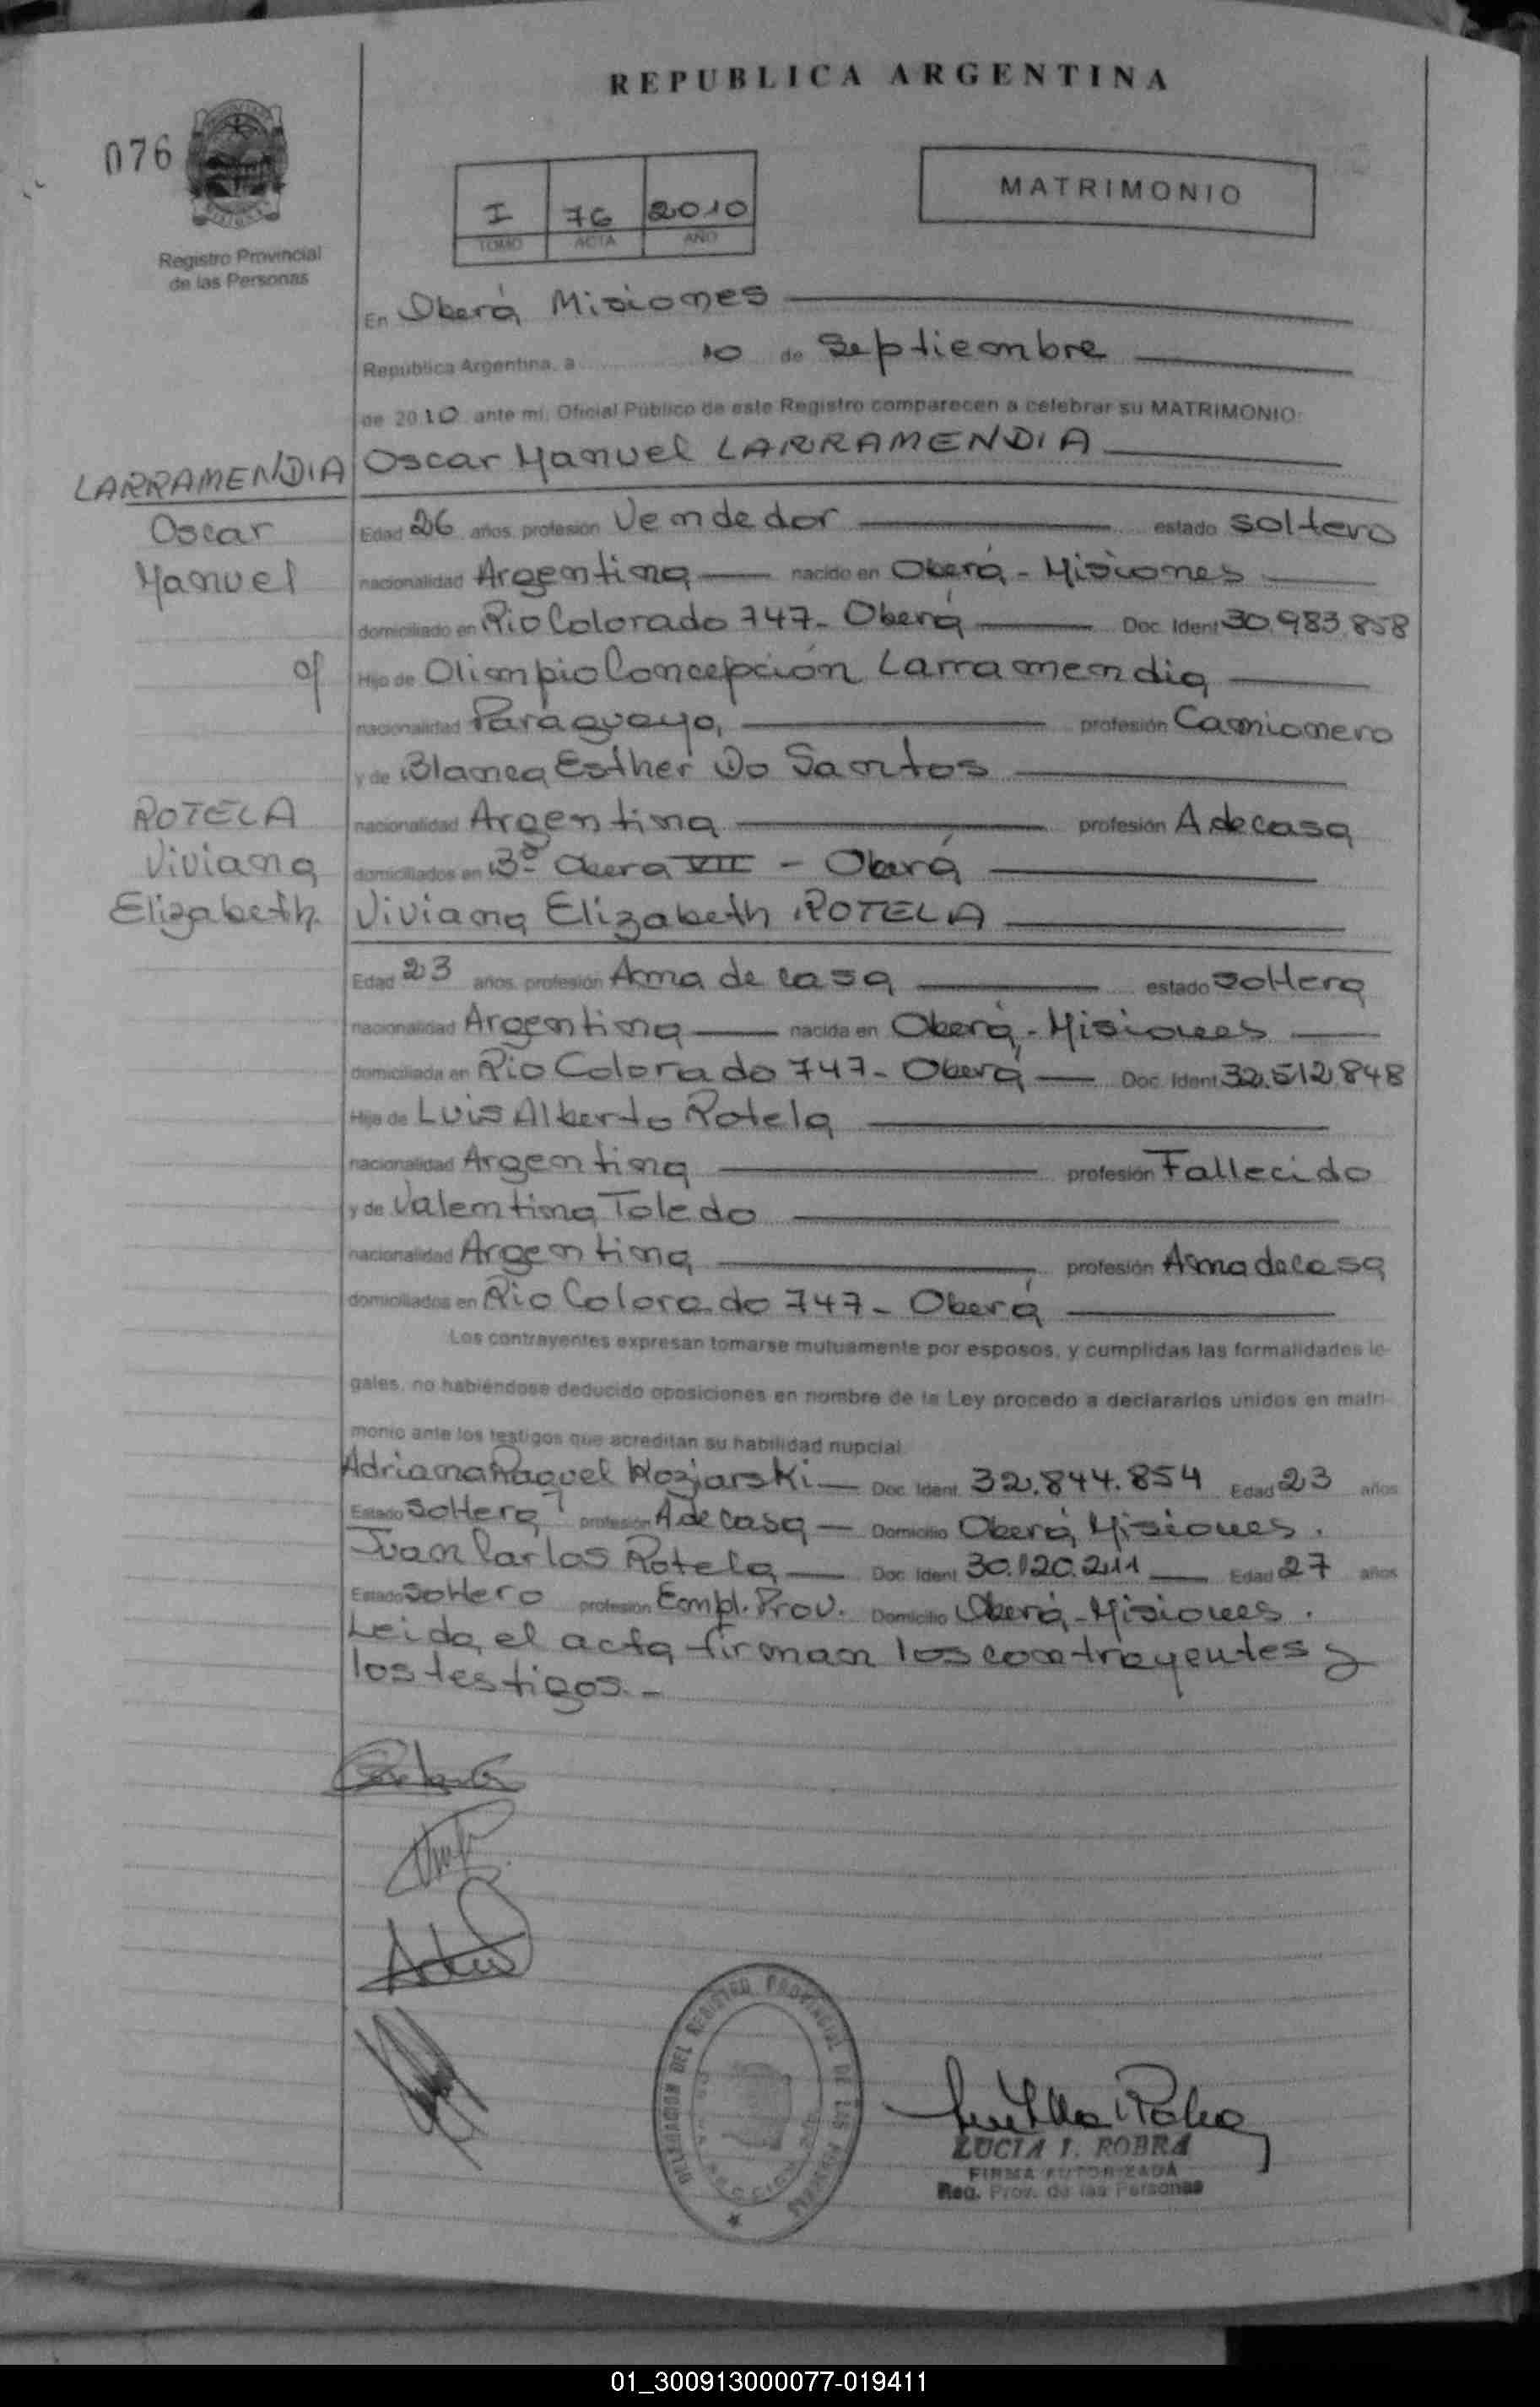 REPUBLICA ARGENTINA
076
Registro Provincial
de las Personas
I 76 2010
TOMO ACTA AÑO
MATRIMONIO
En Oberá Misiones
Republica Argentina, a 10 de Septiembre
de 2010 ante mi, Oficial Público de este Registro comparecen a celebrar su MATRIMONIO:
LARRAMENDIA
Oscar
Manuel
Oscar Manuel LARRAMENDIA
Edad 26 años, profesión Vendedor estado soltero
nacionalidad Argentina nacido en Oberá - Misiones
domiciliado en Rio Colorado 747 - Oberá Doc. Ident 30.983.858
Hijo de Olimpio Concepción Larramendia
nacionalidad Paraguayo, profesión Camionero
y de Blanca Esther Do Santos
ROTELA
Viviana
Elizabeth.
nacionalidad Argentina profesión A de casa
domiciliados en Bº Obera VII - Oberá
Viviana Elizabeth ROTELA
Edad 23 años, profesión Ama de casa estado soltera
nacionalidad Argentina nacida en Oberá - Misiones
domiciliada en Rio Colorado 747 - Oberá Doc. Ident 32.512.848
Hija de Luis Alberto Rotela
nacionalidad Argentina profesión Fallecido
y de Valentina Toledo
nacionalidad Argentina profesión Ama de casa
domiciliados en Rio Colorado 747 - Oberá
Los contrayentes expresan tomarse mutuamente por esposos, y cumplidas las formalidades le-
gales, no habiéndose deducido oposiciones en nombre de la Ley procedo a declararlos unidos en matri-
monio ante los testigos que acreditan su habilidad nupcial.
Adriana Raquel Kozjarski Doc. Ident. 32.844.854 Edad 23 años
Estado Soltera profesión A de casa Domicilio Oberá, Misiones.
Juan Carlos Rotela Doc. Ident 30.120.211 Edad 27 años
Estado Soltero profesión Empl. Prov. Domicilio Oberá - Misiones.
Leida el acta firman los contrayentes y
los testigos. -
DELEGACION DEL REGISTRO PROVINCIAL DE LAS PERSONAS
LUCIA I. ROBRA
FIRMA AUTORIZADA
Reg. Prov. de las Personas
01_300913000077-019411